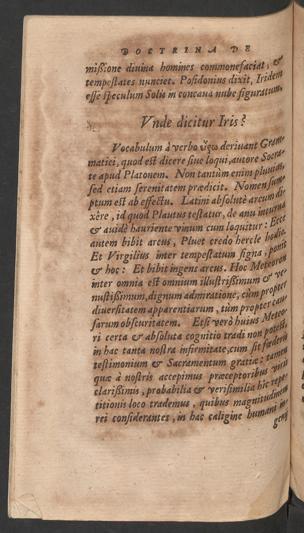 DOCTRINA DE
missione divina homines commonefaciat, &
tempestates nunciet. Posidonius dixit, Iridem
esse speculum Solis in concaua nube figuratum.
Vnde dicitur Iris?
Vocabulum à verbo deriuant Gram-
matici, quod est dicere siue loqui, autore Socra-
te apud Platonem. Non tantùm enim pluuiam,
sed etiam serenitatem prædicit. Nomen sum-
ptum est ab effectu. Latini absolutè arcum di-
xêre, id quod Plautus testatur, de anu
& auidè hauriente vinum cum loquitur: Ecce
autem bibit arcus, Pluet credo hercle hodie.
Et Virgilius inter tempestatum signa, ponit
& hoc: Et bibit ingens arcus. Hoc Meteoron
inter omnia est omnium illustrißimum & ve-
nustißimum, dignum admiratione, cùm propter
diuersitatem apparentiarum, tum propter cau-
sarum obscuritatem. Etsi verò huius Meteo-
ri certa & absoluta cognitio tradi non potest,
in hac tanta nostra infirmitate, cum sit fœderis
testimonium & Sacramentum gratiæ: tamen
quæ à nostris accepimus præceptoribus viris
clarißimis, probabilia & verisimilia hîc repe-
titionis loco trademus, quibus magnitudinem
rei considerantes, in hac caligine humani in-
genij